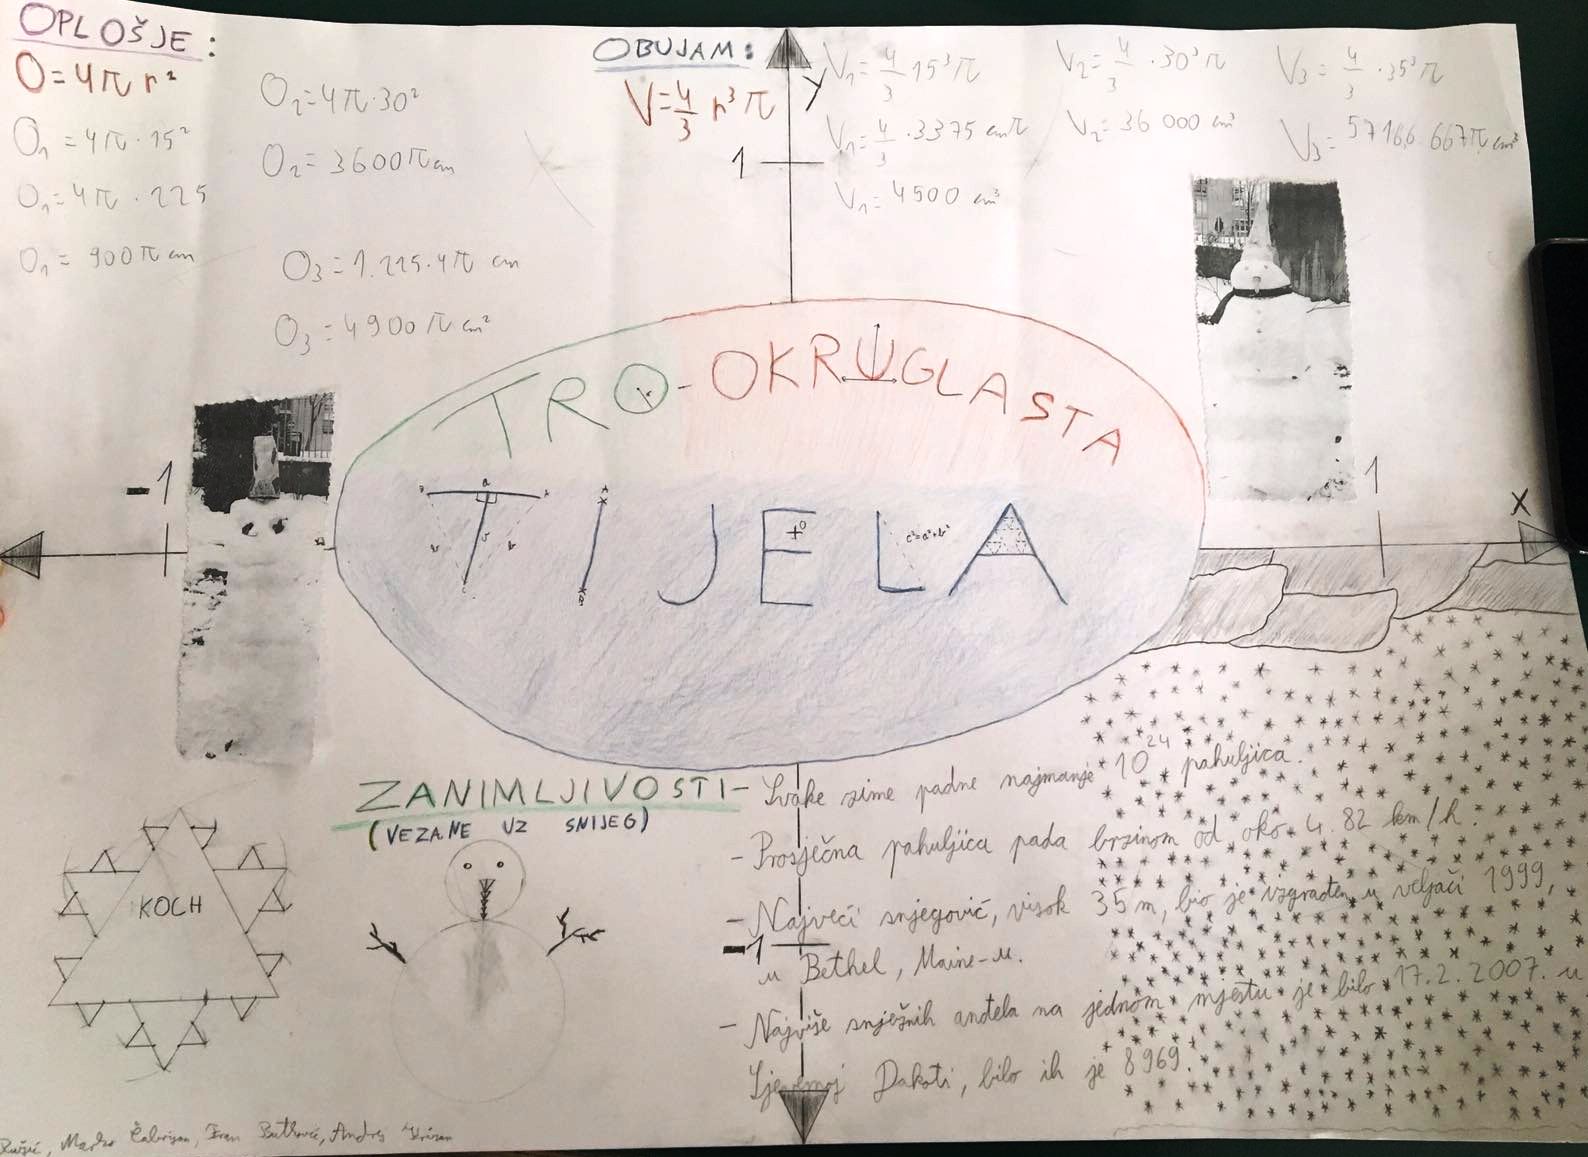 OPLOŠJE:
O=4π r²
O₁=4π·15²
O₁=4π·225
O₁= 900π cm
O₂=4π·30²
O₂=3600π cm
O₃=1.225·4π cm
O₃=4900π cm²
OBUJAM:
V=4/3 r³ π
V₁=4/3 15³π
V₁=4/3·3375 cmπ
V₁=4500 cm³
V₂=4/3·30³π
V₂=36 000 cm³
V₃=4/3·35³π
V₃=57166.667π cm³
y
1
TRO-OKRUGLASTA
-1
1
X
TIJELA
c²=a²+b²
ZANIMLJIVOSTI
(VEZANE UZ SNIJEG)
- Svake zime padne najmanje 10²⁴ pahuljica.
- Prosječna pahuljica pada brzinom od oko 4.82 km/h.
- Najveći snjegović, visok 35m, bio je izgrađen u veljači 1999,
-1
u Bethel, Maine-u.
- Najviše snježnih anđela na jednom mjestu je bilo 17.2.2007. u
Sjevernoj Dakoti, bilo ih je 8969.
KOCH
Marko